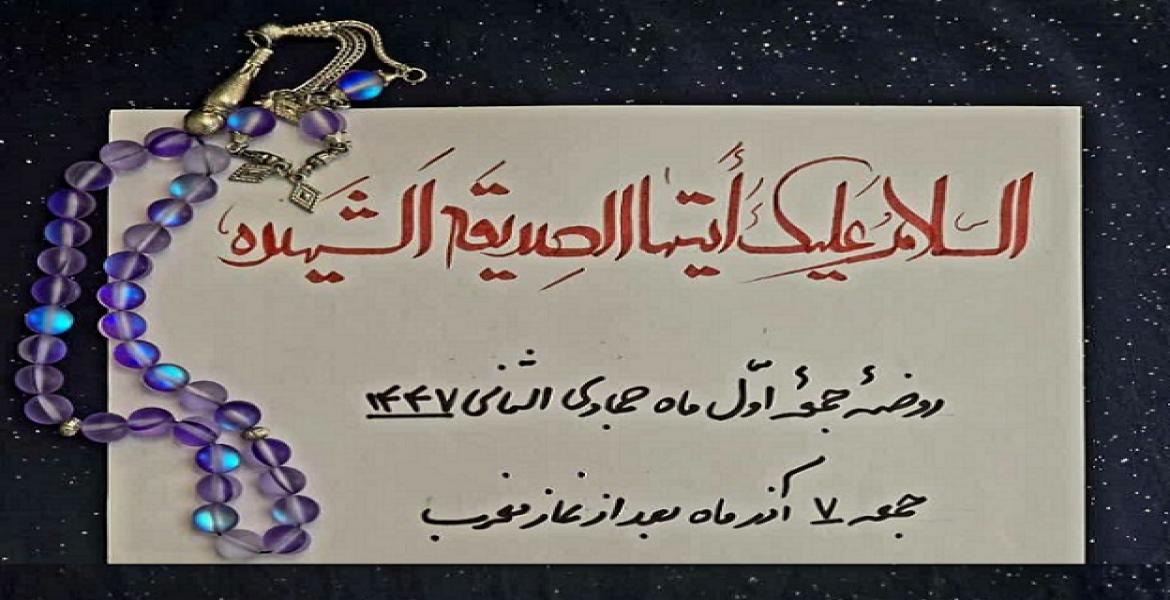 السلام علیک أیتها الصدیقة الشهیده
روضهٔ جمعهٔ اوّل ماه جمادی الثانی ۱۴۴۷
جمعه ۷ آذر ماه بعد از نماز مغرب